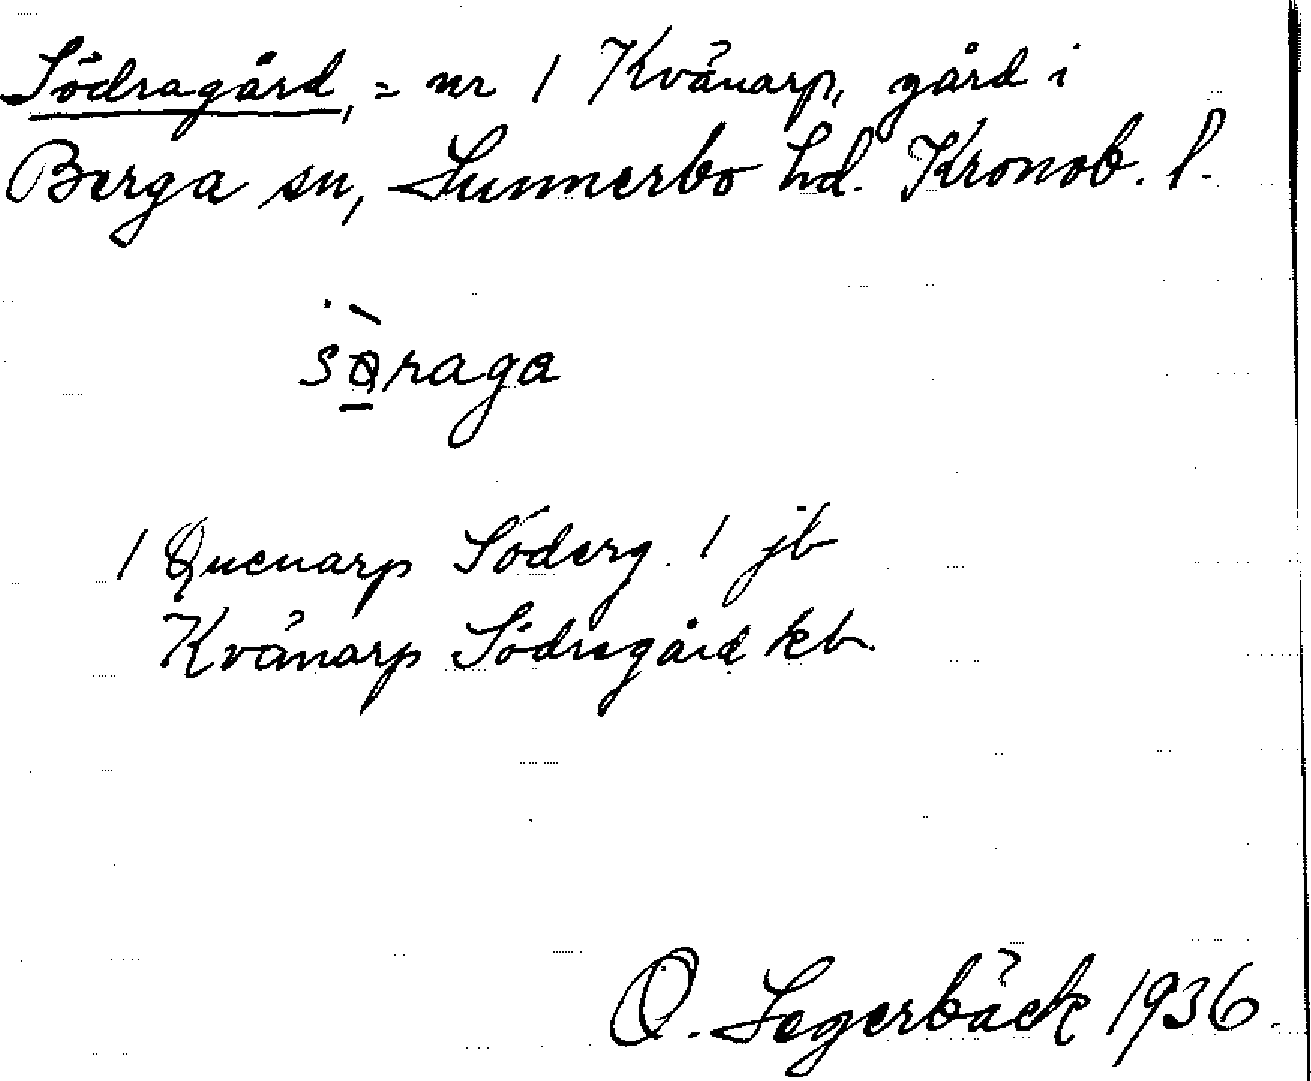 Södragård, = nr 1 Kvänarp, gård i
Berga sn, Sunnerbo hd. Kronob. l.
sø̱̀raga
1 Quenarp Söderg. 1 jb
Kvänarp Södregård kb.
O. Segerbäck 1936.